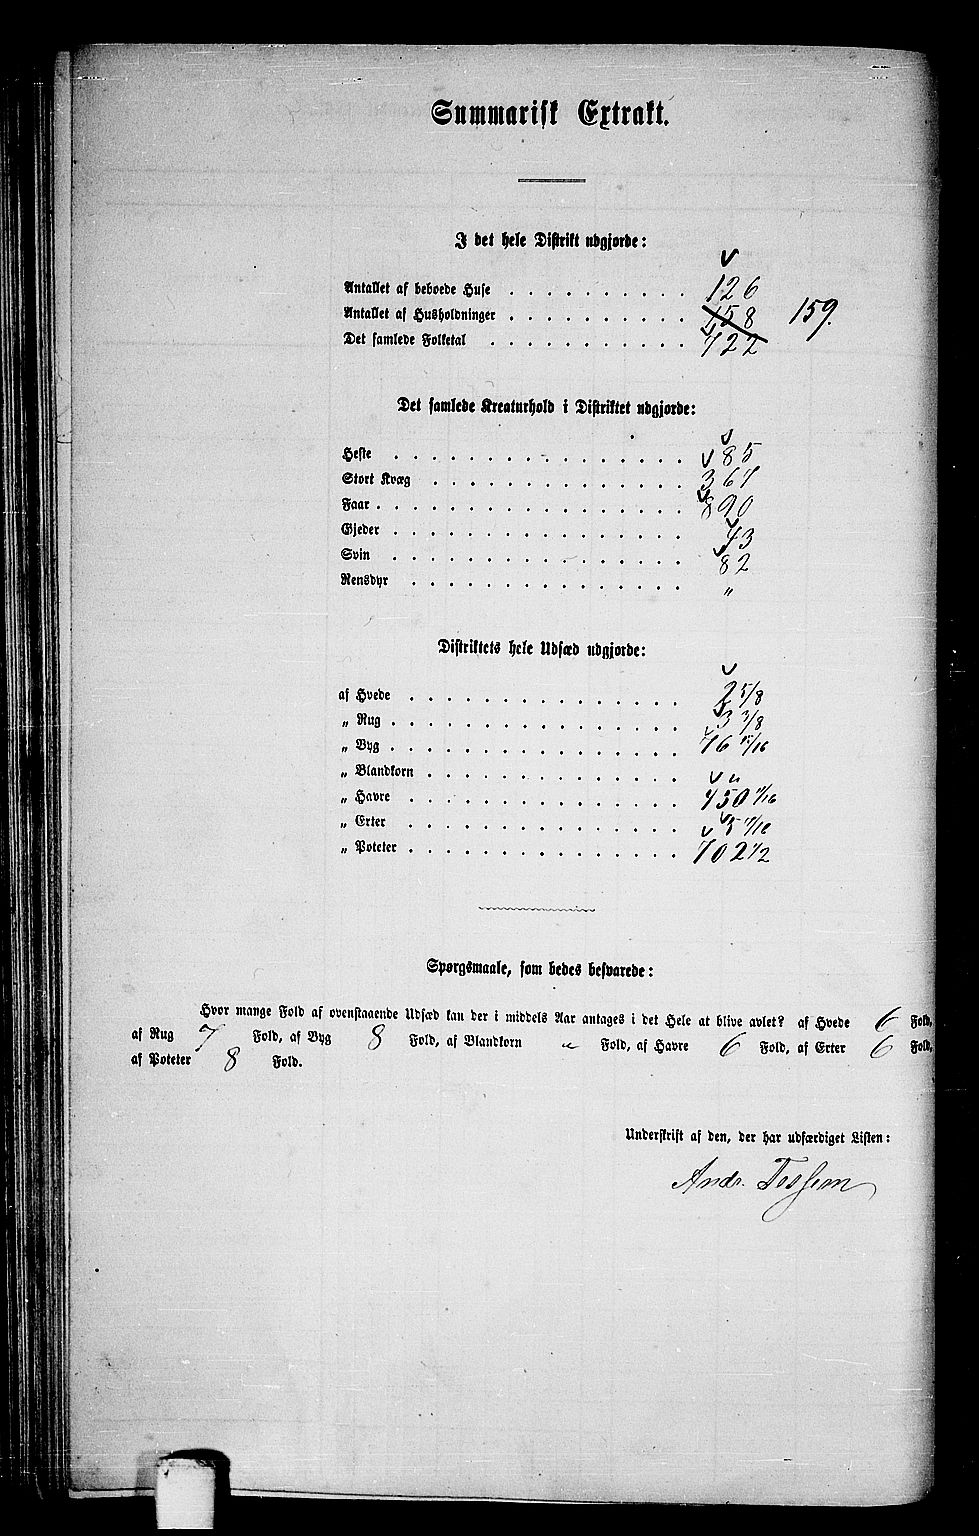 Summarisk Extrakt.
I det hele Distrikt udgjorde:
Antallet af beboede Huse . . . . . . . . . . 126
Antallet af Husholdninger . . . . . . . . . . 158 159.
Det samlede Folketal . . . . . . . . . . 722
Det samlede Kreaturhold i Distriktet udgjorde:
Heste . . . . . . . . . . 85
Stort Kvæg . . . . . . . . . . 367
Faar . . . . . . . . . . 890
Gjeder . . . . . . . . . . 43
Svin . . . . . . . . . . 82
Rensdyr . . . . . . . . . . „
Distriktets hele Udsæd udgjorde:
af Hvede . . . . . . . . . . 2 5/8
„ Rug . . . . . . . . . . 3 3/8
„ Byg . . . . . . . . . . 76 15/16
„ Blandkorn . . . . . . . . . . „
„ Havre . . . . . . . . . . 450 11/16
„ Erter . . . . . . . . . . 5 11/16
„ Poteter . . . . . . . . . . 702 1/2
Spørgsmaale, som bedes besvarede:
Hvor mange Fold af ovenstaaende Udsæd kan der i middels Aar antages i det Hele at blive avlet? af Hvede 6 Fold,
af Rug 7 Fold, af Byg 8 Fold, af Blandkorn „ Fold, af Havre 6 Fold, af Erter 6 Fold,
af Poteter 8 Fold.
Underskrift af den, der har udfærdiget Listen:
Andr. Tessem